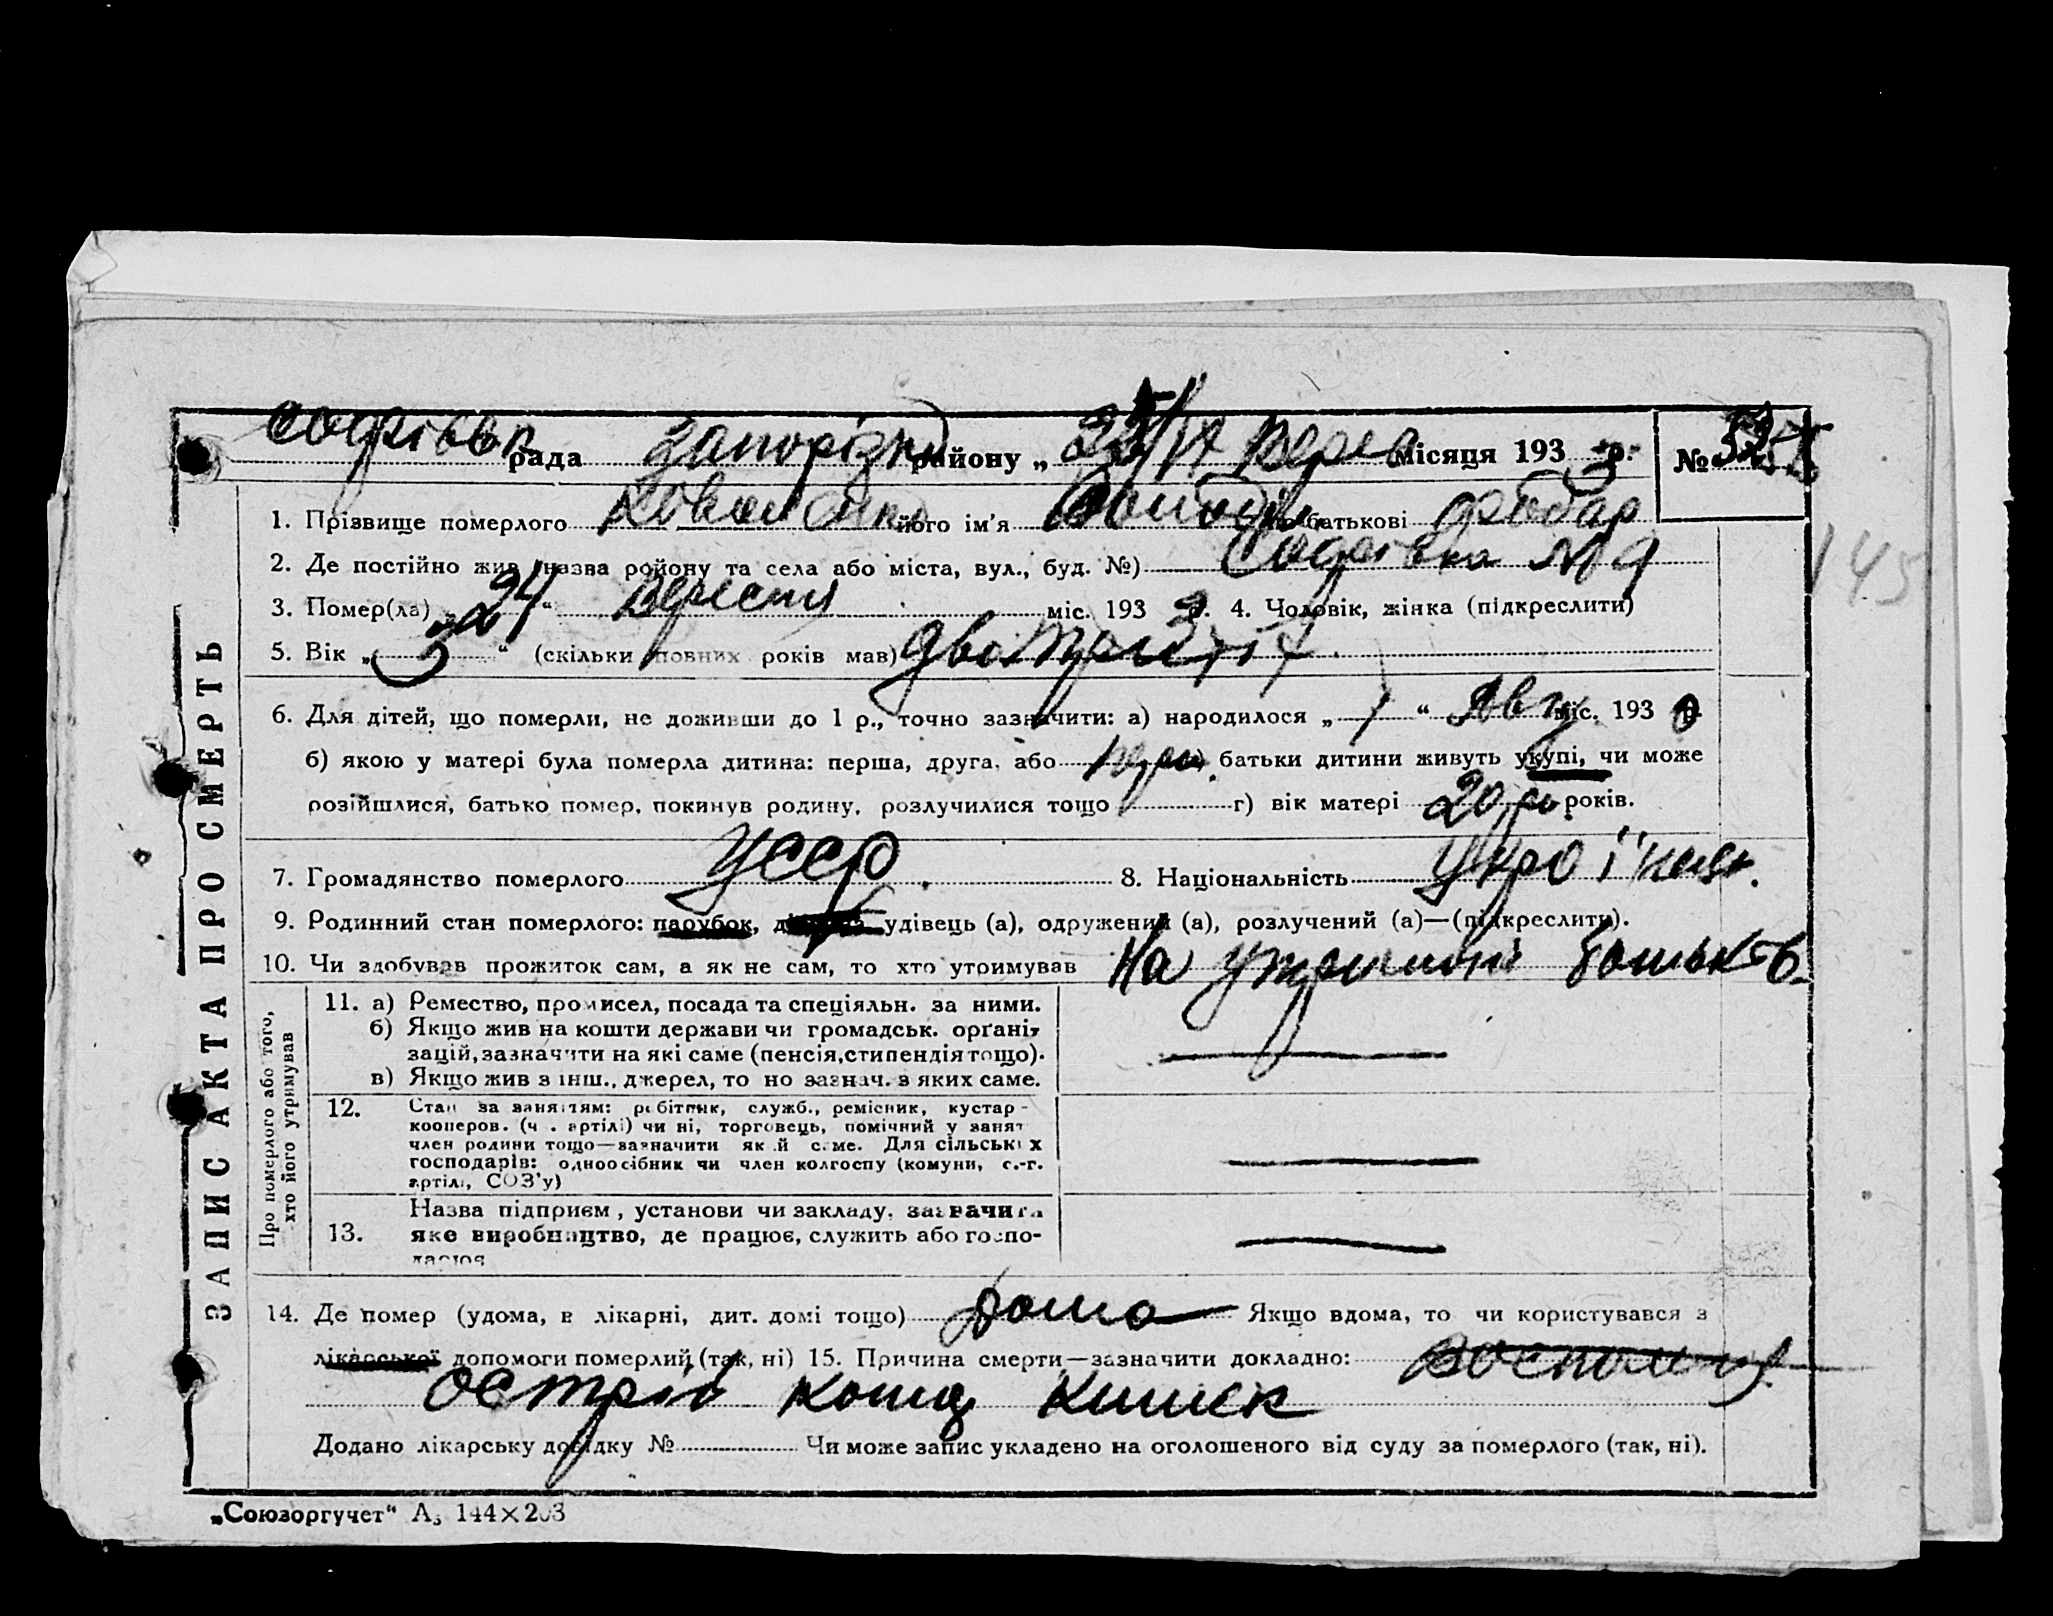 рада Запорізк району „ 25/IX Верес місяця 193 3 р. №
1. Прізвище померлого Коваленко його ім'я по батькові
2. Де постійно жив (назва району та села або міста, вул., буд. №) №
3. Помер(ла) „24“ Вересня міс. 193 3 р. 4. Чоловік, жінка (підкреслити)
5. Вік „3“ (скільки повних років мав)
6. Для дітей, що померли, не доживши до 1 р., точно зазначити: а) народилося „1“ Авг міс. 193 0 р.
б) якою у матері була померла дитина: перша, друга, або батьки дитини живуть укупі, чи може
розійшлися, батько помер, покинув родину, розлучилися тощо г) вік матері 20 років.
7. Громадянство померлого УССР. 8. Національність Україн.
9. Родинний стан померлого: парубок, удівець (а), одружений (а), розлучений (а)—(підкреслити).
10. Чи здобував прожиток сам, а як не сам, то хто утримував На утриманні батьків
11. а) Ремество, промисел, посада та спеціяльн. за ними.
б) Якщо жив на кошти держави чи громадськ. орґані-
зацій, зазначити на які саме (пенсія, стипендія тощо).
в) Якщо жив з інш., джерел, то но зазнач. з яких саме.
12. Стан за заняттям: робітник, служб., ремісник, кустар-
кооперов. (ч. артілі) чи ні, торговець, помічний у занят
член родини тощо—зазначити як й саме. Для сільських
господарів: одноосібник чи член колгоспу (комуни, с.-г.
артілі, СОЗ'у)
Назва підприєм, установи чи закладу, зазначити
13. яке виробництво, де працює, служить або госпо-
дарює
14. Де помер (удома, в лікарні, дит. домі тощо) дома Якщо вдома, то чи користувався з
лікарської допомоги померлий (так, ні) 15. Причина смерти—зазначити докладно:
острів кощ кишек
Додано лікарську довідку № Чи може запис укладено на оголошеного від суду за померлого (так, ні).
„Союзоргучет“ А₅ 144×203
ЗАПИС АКТА ПРО СМЕРТЬ
Про померлого або того,
хто його утримував
145